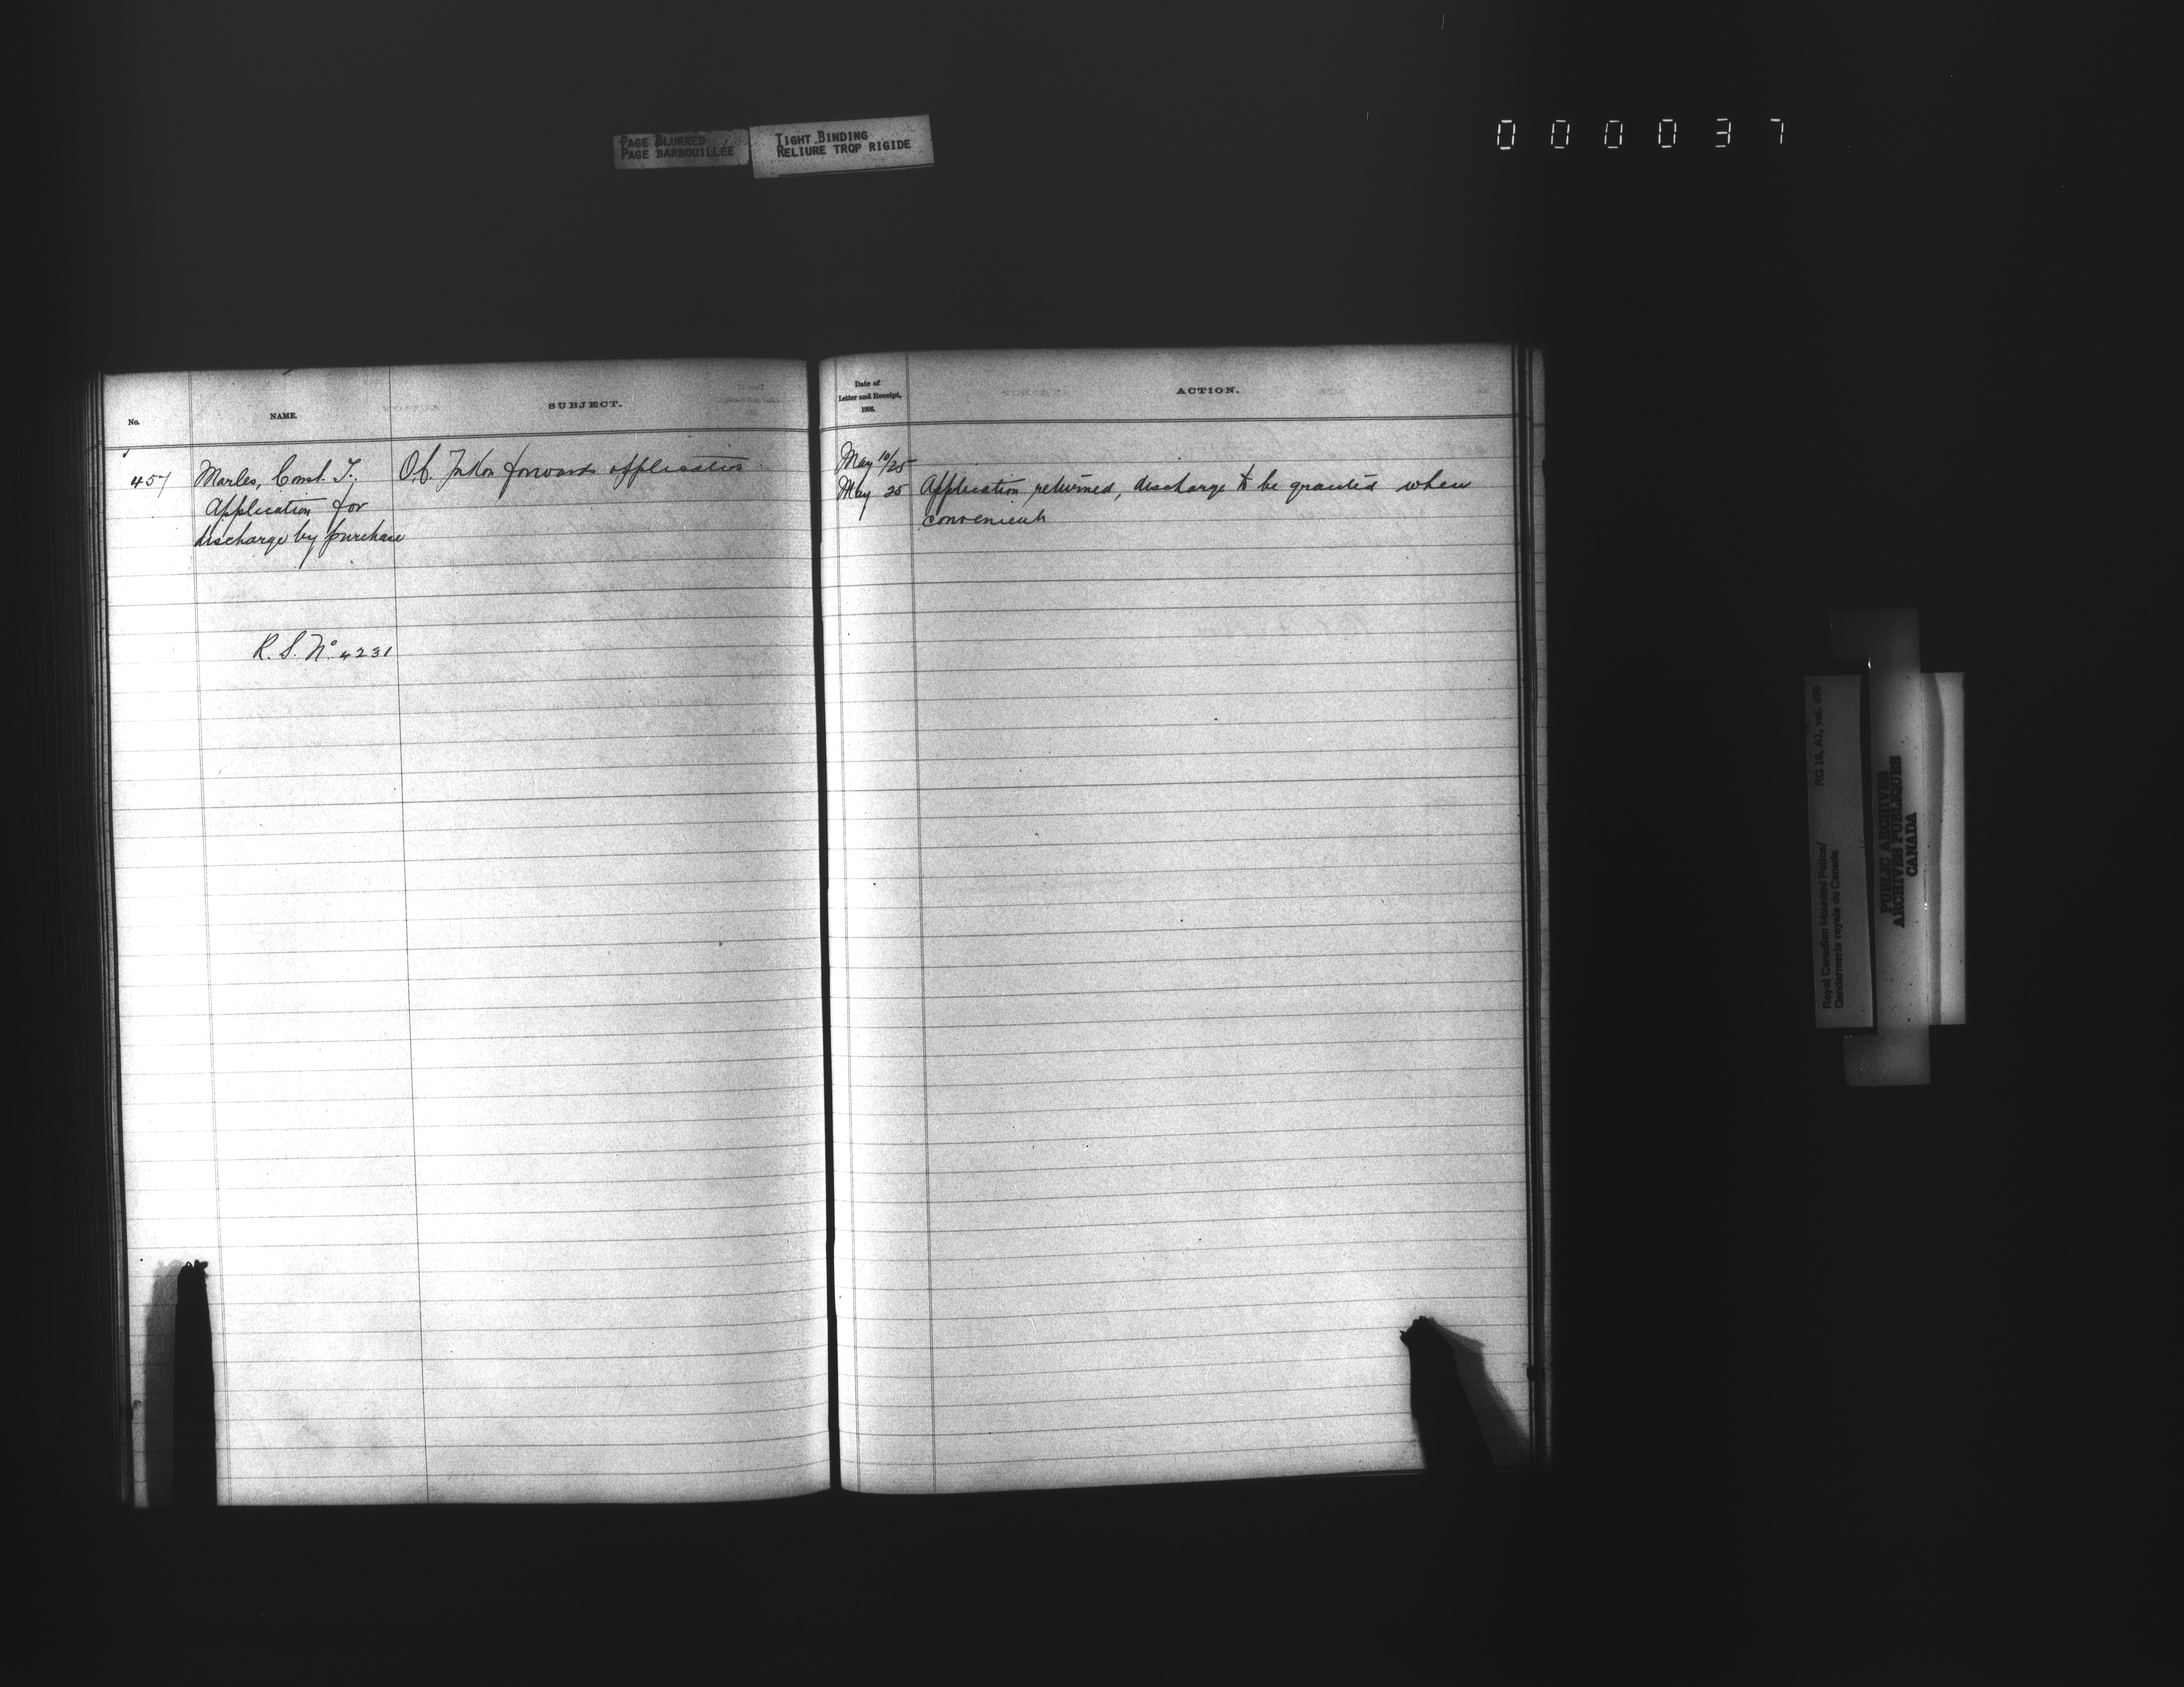 PAGE BLURRED
PAGE BARBOUILLÉE
TIGHT BINDING
RELIURE TROP RIGIDE
000037
No.
NAME.
SUBJECT.
Date of
Letter and Receipt,
1908.
ACTION.
457
Marles, Const. T.,
Application for
discharge by purchase
R.S. No. 4231
O.C. Yukon forwards application.
May 10/25
May 25
Application returned, discharge to be granted when
convenient
Royal Canadian Mounted Police/
Gendarmerie royale du Canada
RG 18, A1, vol.
PUBLIC ARCHIVES
ARCHIVES PUBLIQUES
CANADA